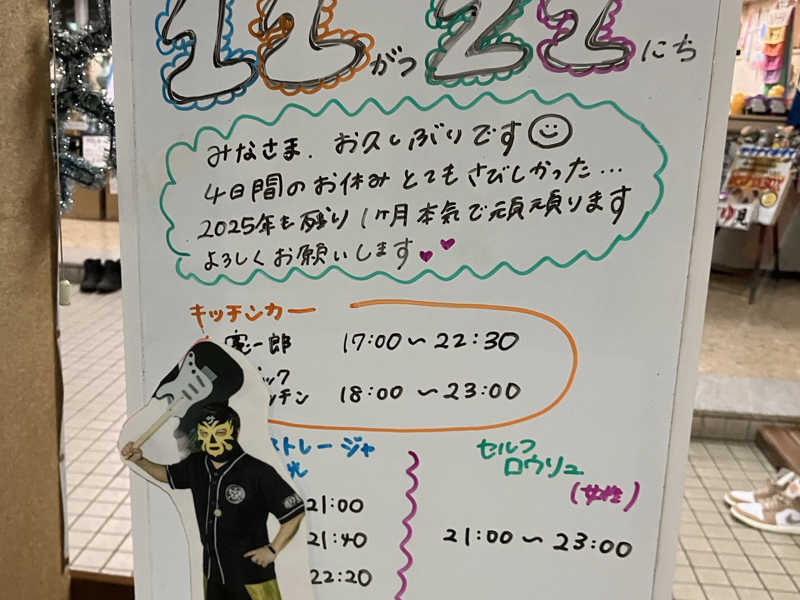 11がつ21にち
みなさま. お久しぶりです
4日間のお休みとてもさびしかった...
2025年も残り1ヶ月本気で頑張ります
よろしくお願いします
キッチンカー
憲一郎 17:00〜22:30
ック
ッチン 18:00〜23:00
ストレージャ
光
21:00
21:40
22:20
セルフ
ロウリュ
(女性)
21:00〜23:00